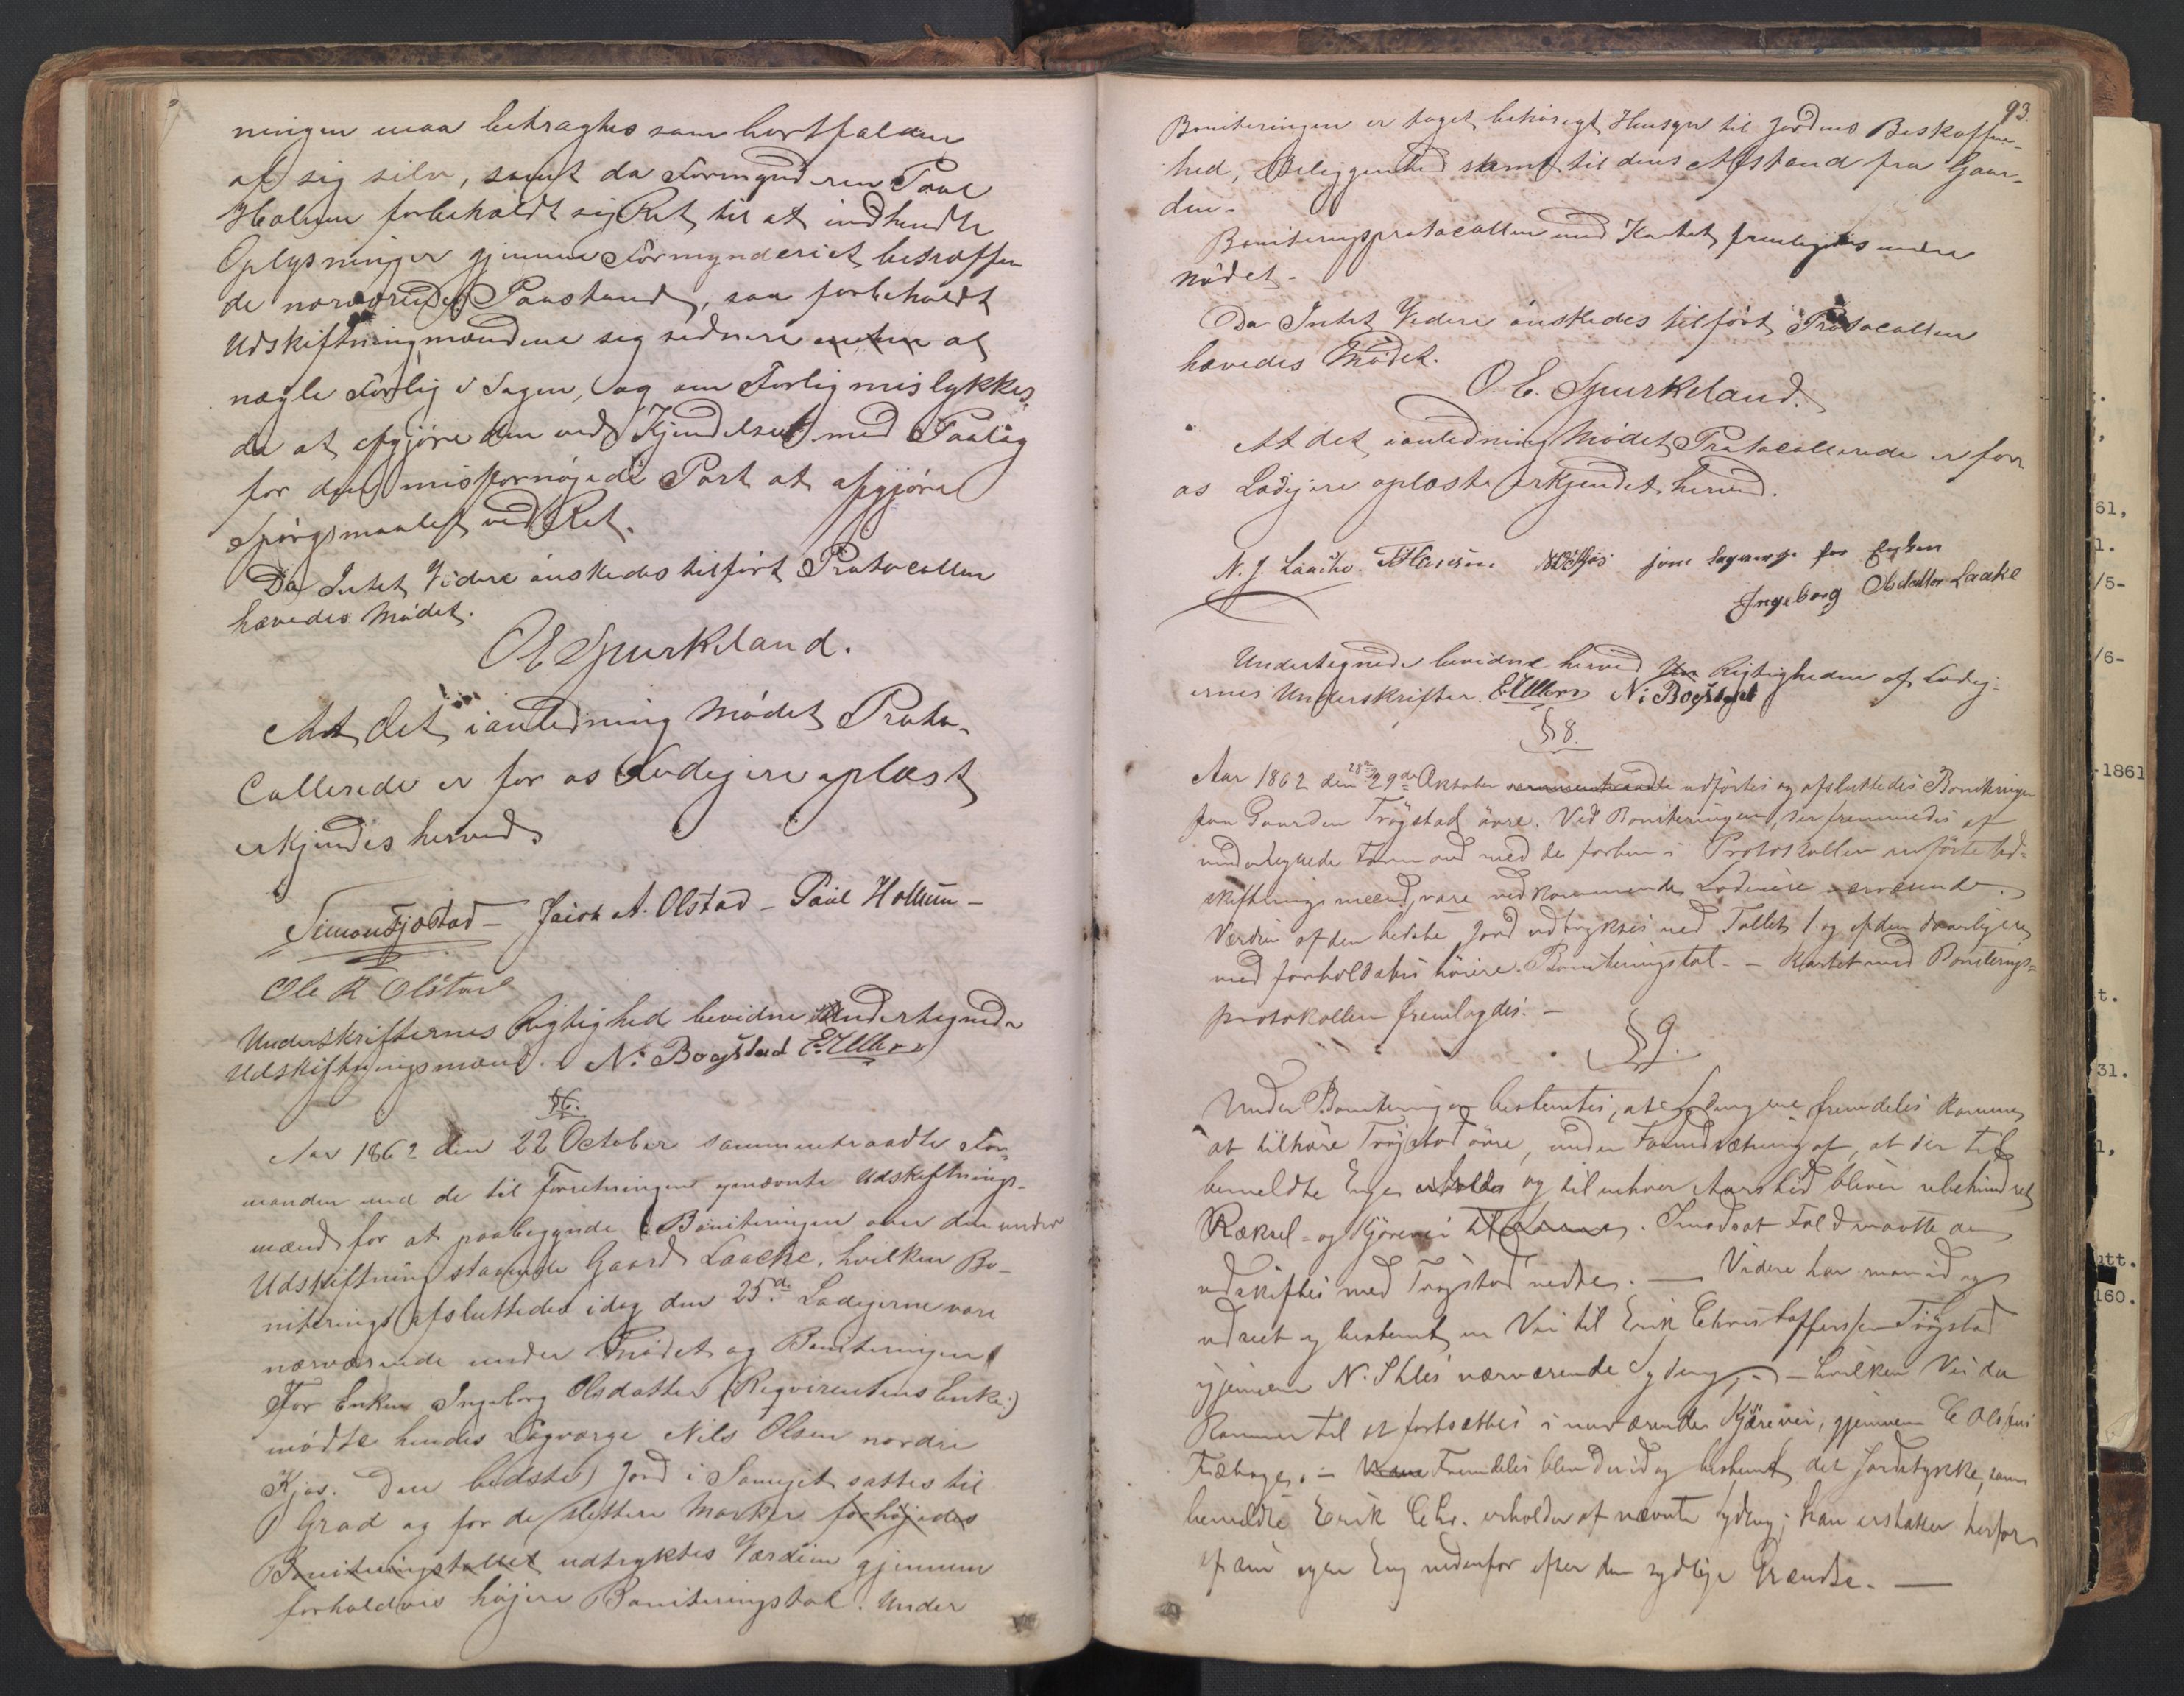 ningen maa betragtes som bortfalden
af sig selv, samt da Formynderen Paul
Hollum forbeholdt sig Ret til at indhendte
Oplysninger gjennem Formynderiet betræffen
de nærværende Paastand, saa forbeholdt
Udskiftningsmændene sig sednere enten at
mægle Forlig i Sagen, og om Forlig mislykkes,
da at afgjøre den ved Kjendelse med Paalæg
for den misfornøjede Part at afgjøre
Spørgsmaalet ved Ret.
Da Intet Videre ønskedes tilført Protocollen
hævedes Mødet.
O E Spurkeland.
At det i anledning Mødet Proto-
collerede er for os Lodejere oplæst
erkjendes herved
Simon Fjøstad - Jacob A. Olstad - Paul Hollum -
Ole R Olstad
Underskrifternes Rigtighed bevidne undertegnede
Udskiftningsmænd. N: Bogstad E. Ullern
§ 6.
Aar 1862 den 22 October sammentraadte For-
manden med de til Forretningen opnævnte Udskiftnings-
mænd for at paabegynde Boniteringen over den under
Udskiftning staaende Gaard Laache, hvilken Bo-
nitering afsluttedes idag den 25de Lodejerne vare
nærværende under Mødet og Boniteringen
For Enken Ingeborg Olsdatter (Reqvirentens Enke:)
mødte hendes Lagværge Nils Olsen nordre
Kjos. Den bedste Jord i Sameiet sattes til
1 Grad og for de slettere Marker forhøjedes
Boniteringstallet udtryktes Værdien gjennem
forholdvis højere Boniteringstal. Under
93.
Boniteringen er taget behørigt Hensyn til Jordens Beskaffen-
hed, Beliggenhed samt til dens Afstand fra Gaar-
den.
Boniteringsprotocollen med Kartet fremlagdes under
Mødet.
Da Intet Videre ønskedes tilført Protocollen
hævedes Mødet.
O. E. Spurkeland.
At det i anledning Mødet Protocollerede er for
os Lodejere oplæst erkjendes herved.
N. J. Laache. Hansen Kjos som lagværge for Enken
Ingeborg Olsdatter Laake
Undertegnede bevidne herved Rigtigheden af Lodej-
ernes Underskrifter. E. Ullern N: Bogstad
§ 8.
Aar 1862 den 28de 29de Oktober sammentraadte udførtes og afsluttedes Boniteringen
paa Gaarden Trøgstad øvre. Ved Boniteringen, der fremmedes af
undertegnede Formand med de forhen i Protokollen anførte Ud-
skiftningsmænd, vare vedkommende Lodeiere nærværende.
Værdien af den bedste Jord udtryktes ved Tallet 1 og af den daarligere
med forholdsvis høiere Boniteringstal. - Kartet med Boniterings-
protokollen fremlagdes. -
§ 9.
Under Boniteringen bestemtes, at Engene fremdeles komme
at tilhøre Trøgstad øvre, under Forudsætning af, at der til
bemeldte Enge erholdes og til enhver Aarstid bliver ubehindret
Ræksel- og Kjørevei. I modsat Fald maatte de
udskiftes med Trøgstad nedre. - Videre har man idag
udseet og bestemt en Vei til Erik Christoffersen Trøgstad
gjennem N. Ihles nærværende - hvilken Vei da
kommer til at fortsættes i nuværende Kjørevei, gjennem C Olsens
Fremdeles blev der idag bestemt det Jordstykke, som
bemeldte Erik Chr. erholder af nævnte; han erstatter herfor
af sin egen Eng nedenfor efter den sydlige Grændse. -
61,
1.
/5-
/6-
-1861
t.
31.
1,
tt.
160.